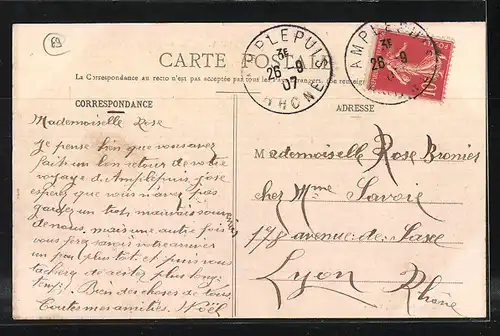 69
CARTE POSTALE
La Correspondance au recto n'est pas acceptée par tous les Pays étrangers. (Se renseigner
AMPLEPUIS
3E
26 - 9
07
RHÔNE
AMPLEPUIS
3E
26 - 9
CORRESPONDANCE
Mademoiselle Rose
Je pense bien que vous avez
fait un bon retour de votre
voyage d'Amplepuis j'ose
espérer que vous n'avez pas
garder un trop mauvais souvenir
de nous, mais une autre fois
vous ferez savoir votre
un peu plus tôt et puis nous
tachery de rester plus long-
temps. Bien des choses de tous
Toutes mes amitiés. Noël
ADRESSE
Mademoiselle Rose Bronier
chez Mme Savoie
178 avenue de Saxe
Lyon
Rhône